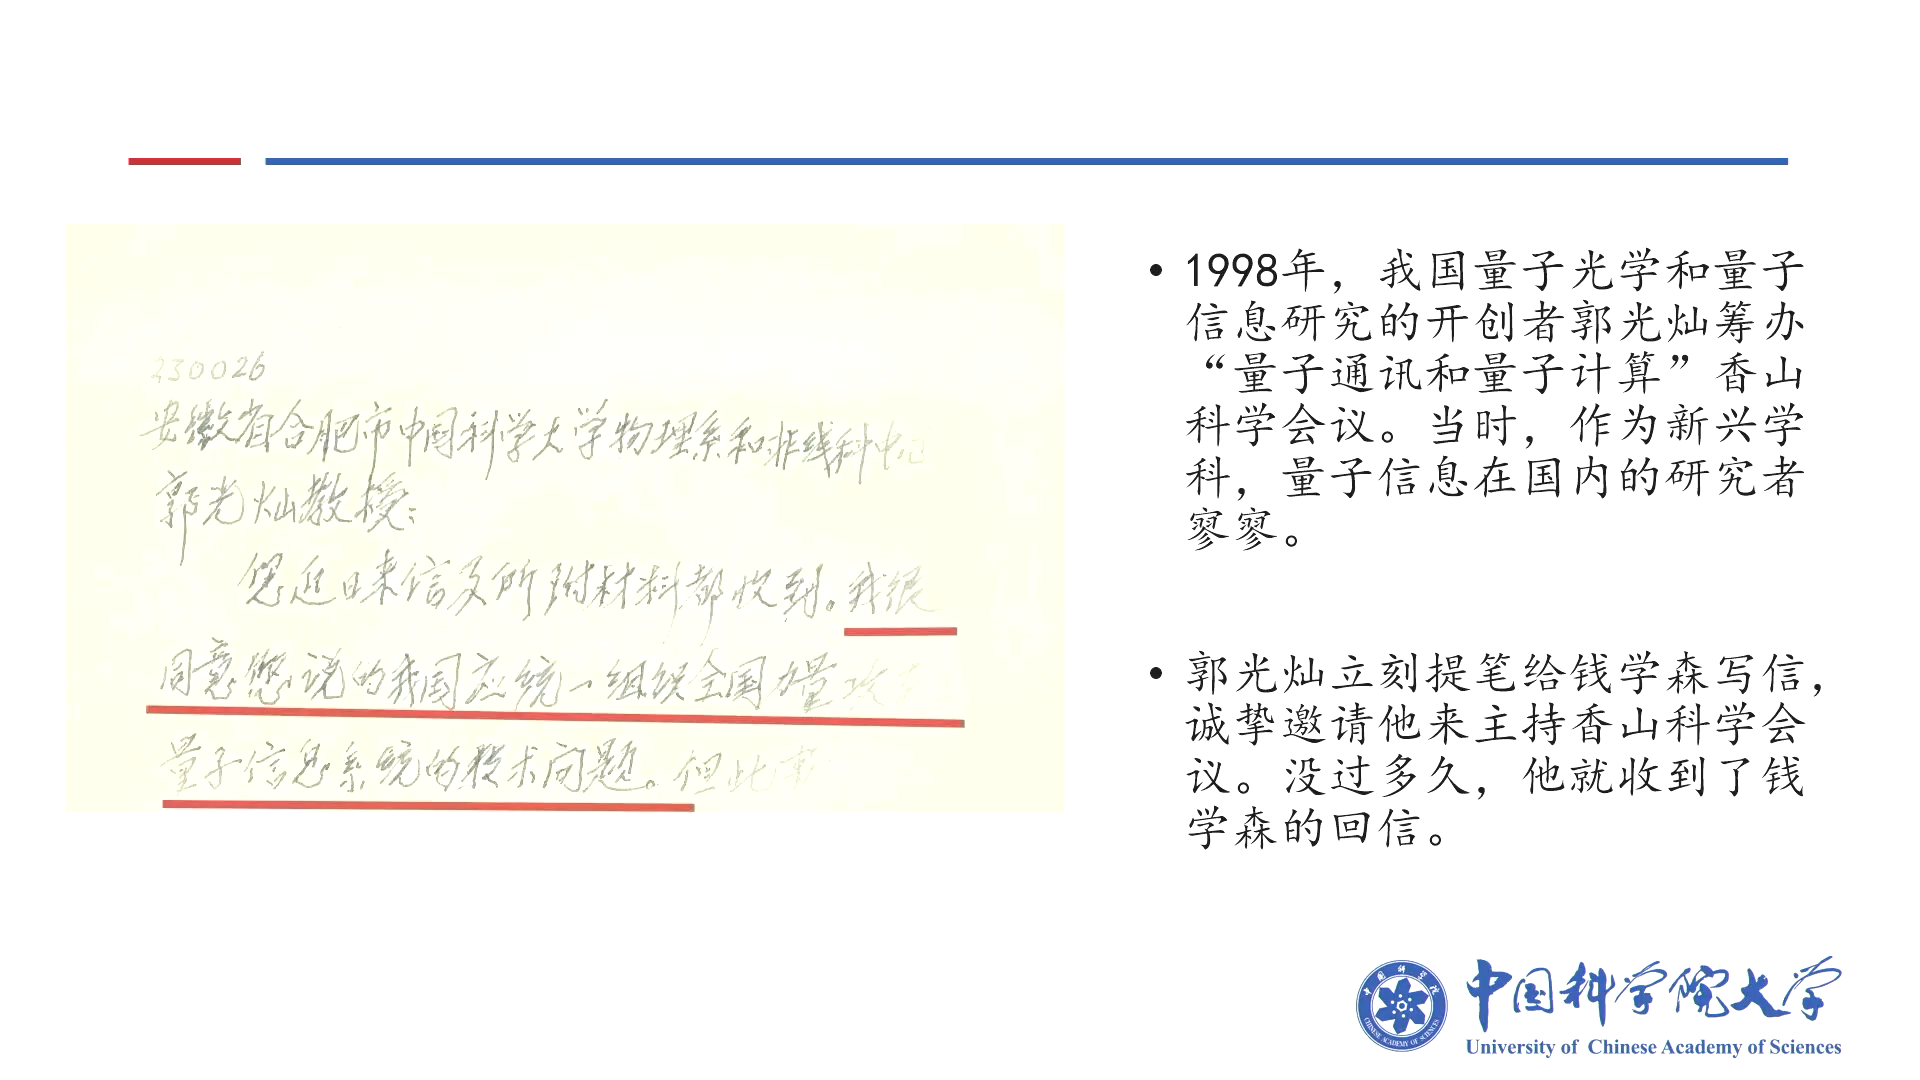 230026
安徽省合肥市中国科学大学物理系和非线科中心
郭光灿教授:
您近日来信及所附材料都收到。我很
同意您说的我国应统一组织全国力量攻
量子信息系统的技术问题。但此
• 1998年，我国量子光学和量子
信息研究的开创者郭光灿筹办
“量子通讯和量子计算”香山
科学会议。当时，作为新兴学
科，量子信息在国内的研究者
寥寥。
• 郭光灿立刻提笔给钱学森写信，
诚挚邀请他来主持香山科学会
议。没过多久，他就收到了钱
学森的回信。
中国科学院
CHINESE ACADEMY OF SCIENCES
中国科学院大学
University of Chinese Academy of Sciences